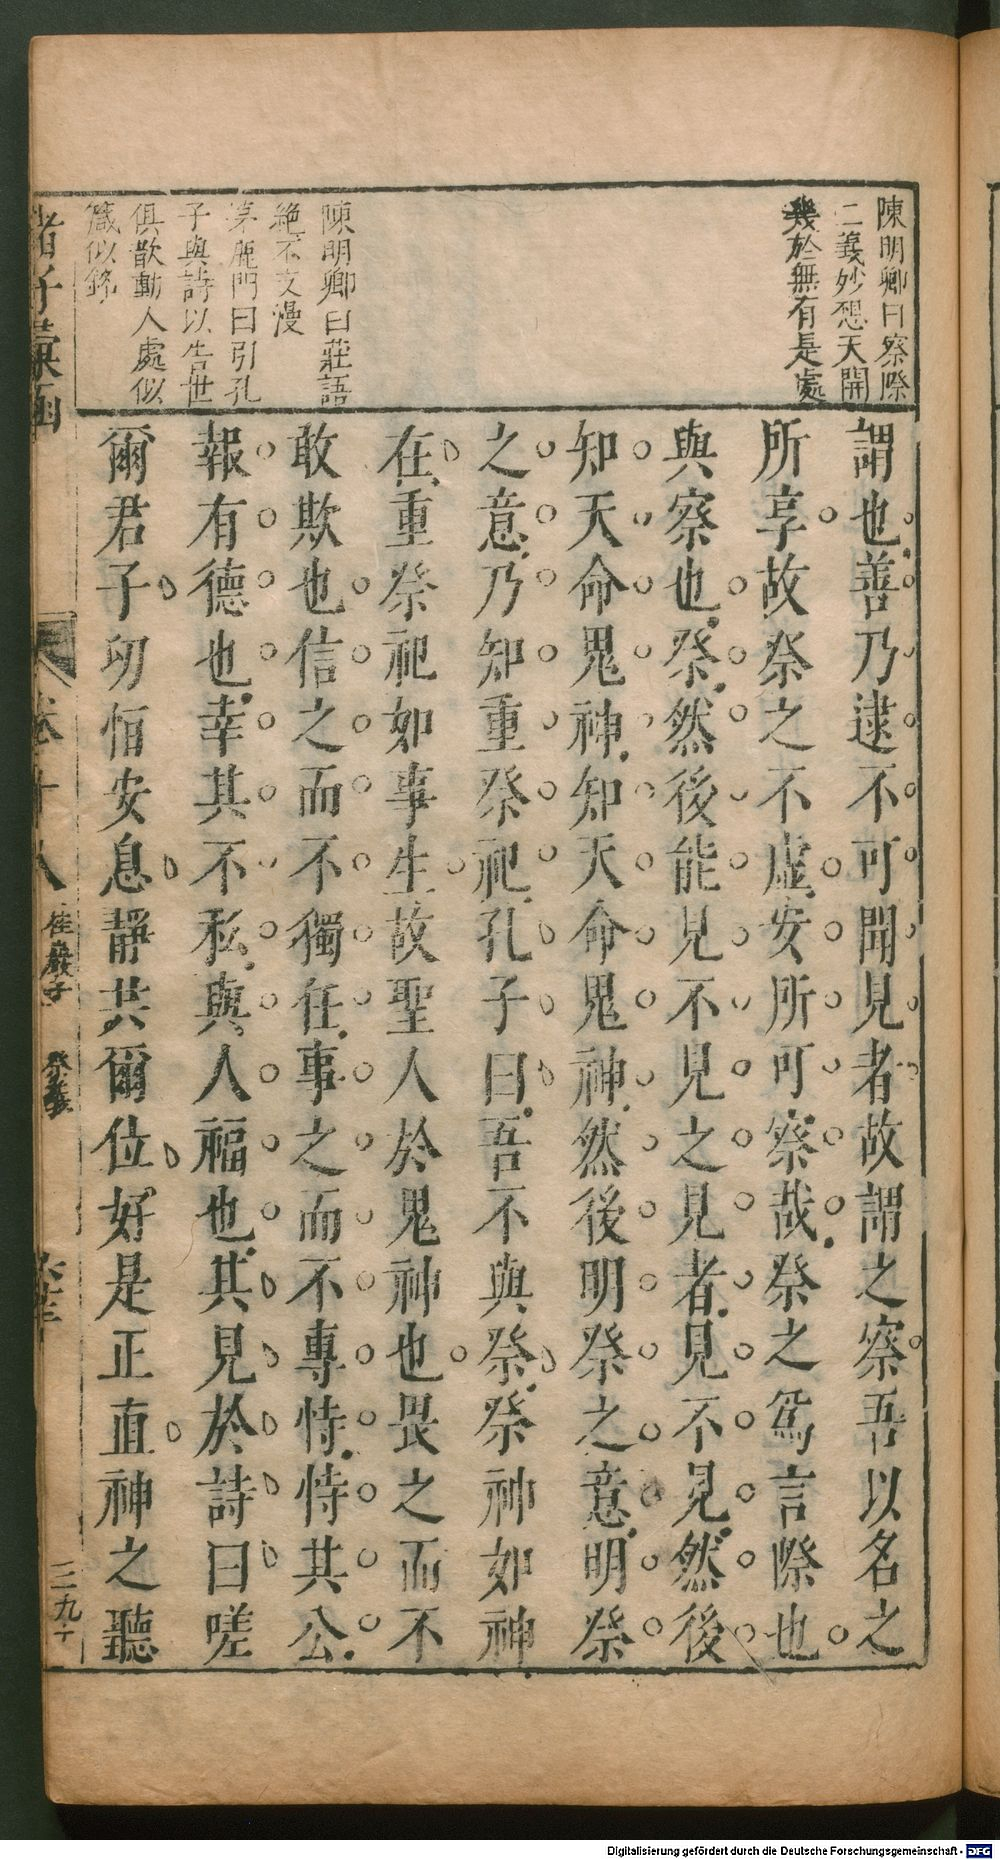 陳明卿曰察際
二義妙想天開
幾於無有是處
陳明卿曰莊語
絶不支漫
茅鹿門曰引孔
子與詩以告世
俱歆動人處似
箴似銘
謂也善乃逮不可聞見者故謂之察吾以名之
所享故祭之不虛安所可察哉祭之爲言際也
與察也祭然後能見不見之見者見不見然後
知天命鬼神知天命鬼神然後明祭之意明祭
之意乃知重祭祀孔子曰吾不與祭祭神如神
在重祭祀如事生故聖人於鬼神也畏之而不
敢欺也信之而不獨任事之而不專恃恃其公
報有德也幸其不私與人福也其見於詩曰嗟
爾君子毋恒安息靜共爾位好是正直神之聽
諸子彙函
卷十八
桂巖子
祭義
三九十
Digitalisierung gefördert durch die Deutsche Forschungsgemeinschaft - DFG